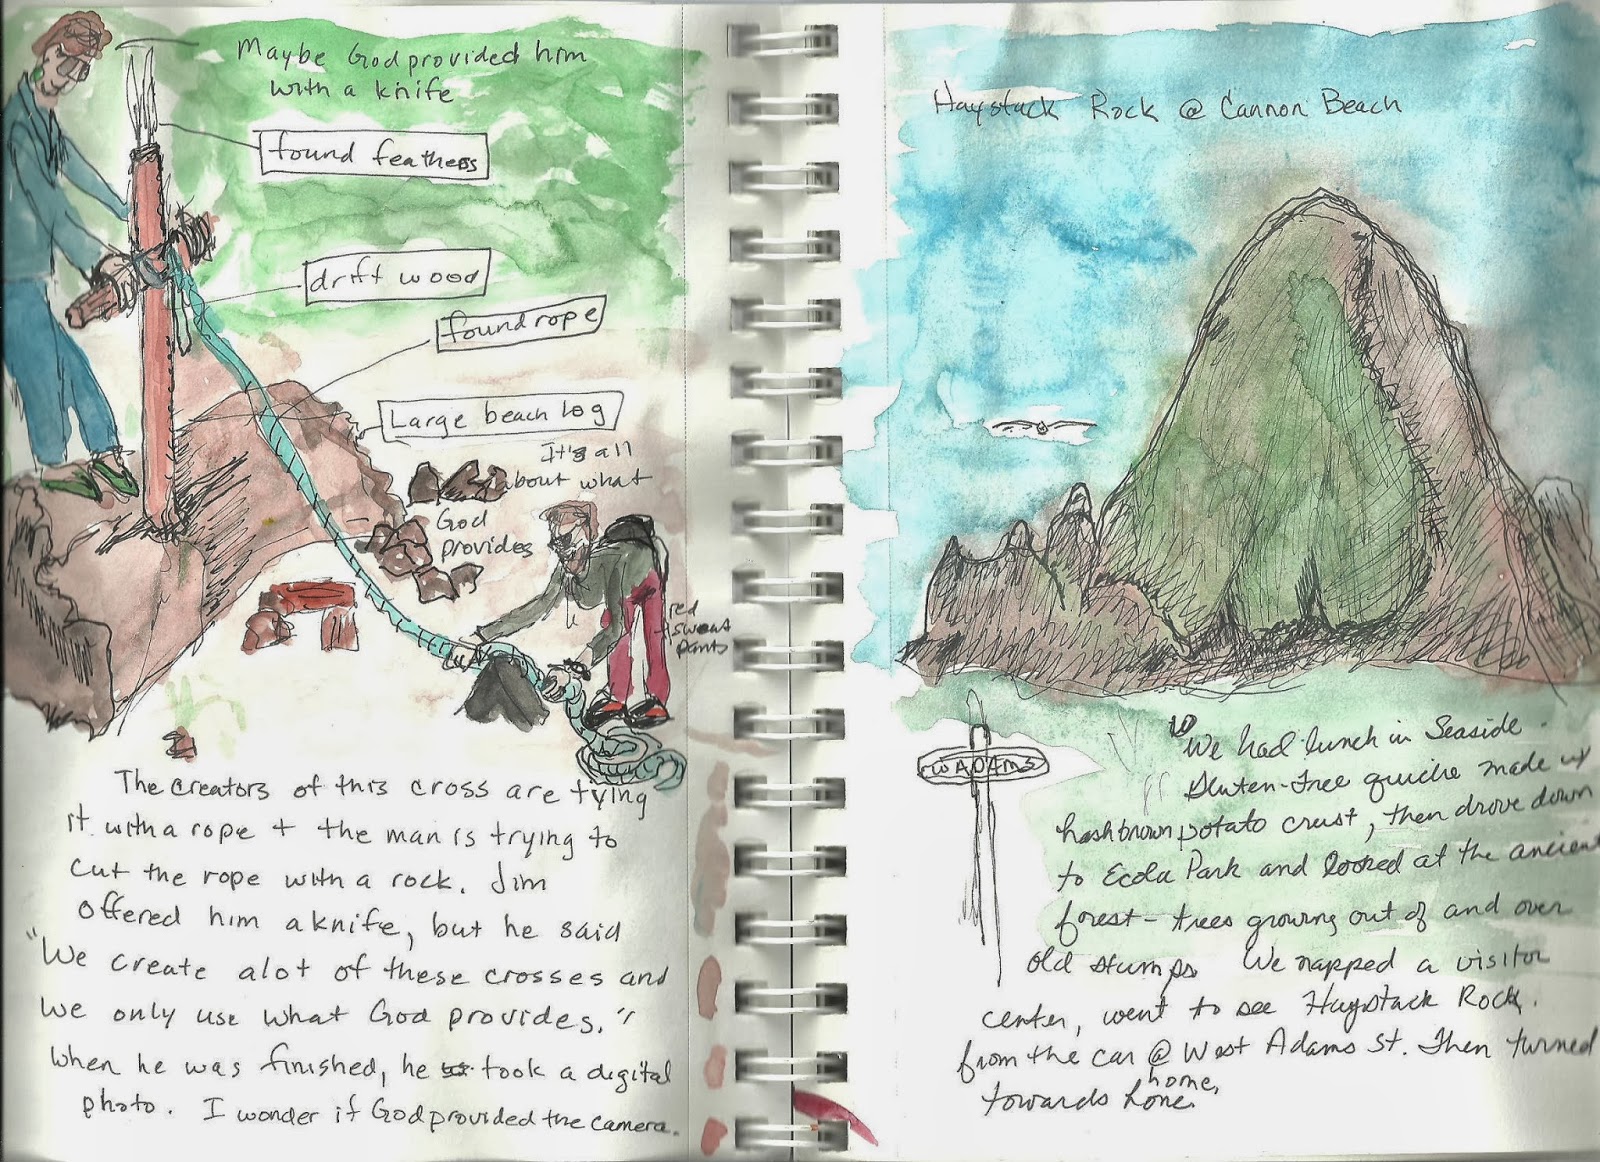 Maybe God provided him
with a knife
found feathers
drift wood
found rope
Large beach log
It's all
about what
God
provides
red
sweat
pants
The creators of this cross are tying
it with a rope + the man is trying to
cut the rope with a rock. Jim
offered him a knife, but he said
"We create alot of these crosses and
we only use what God provides."
When he was finished, he took a digital
photo. I wonder if God provided the camera.
Haystack Rock @ Cannon Beach
W ADAMS
We had lunch in Seaside.
Gluten-Free quiche made w/
hashbrown potato crust, then drove down
to Ecola Park and looked at the ancient
forest - trees growing out of and over
old stumps We napped @ visitor
center, went to see Haystack Rock.
from the car @ West Adams St. Then turned
towards home.
home.